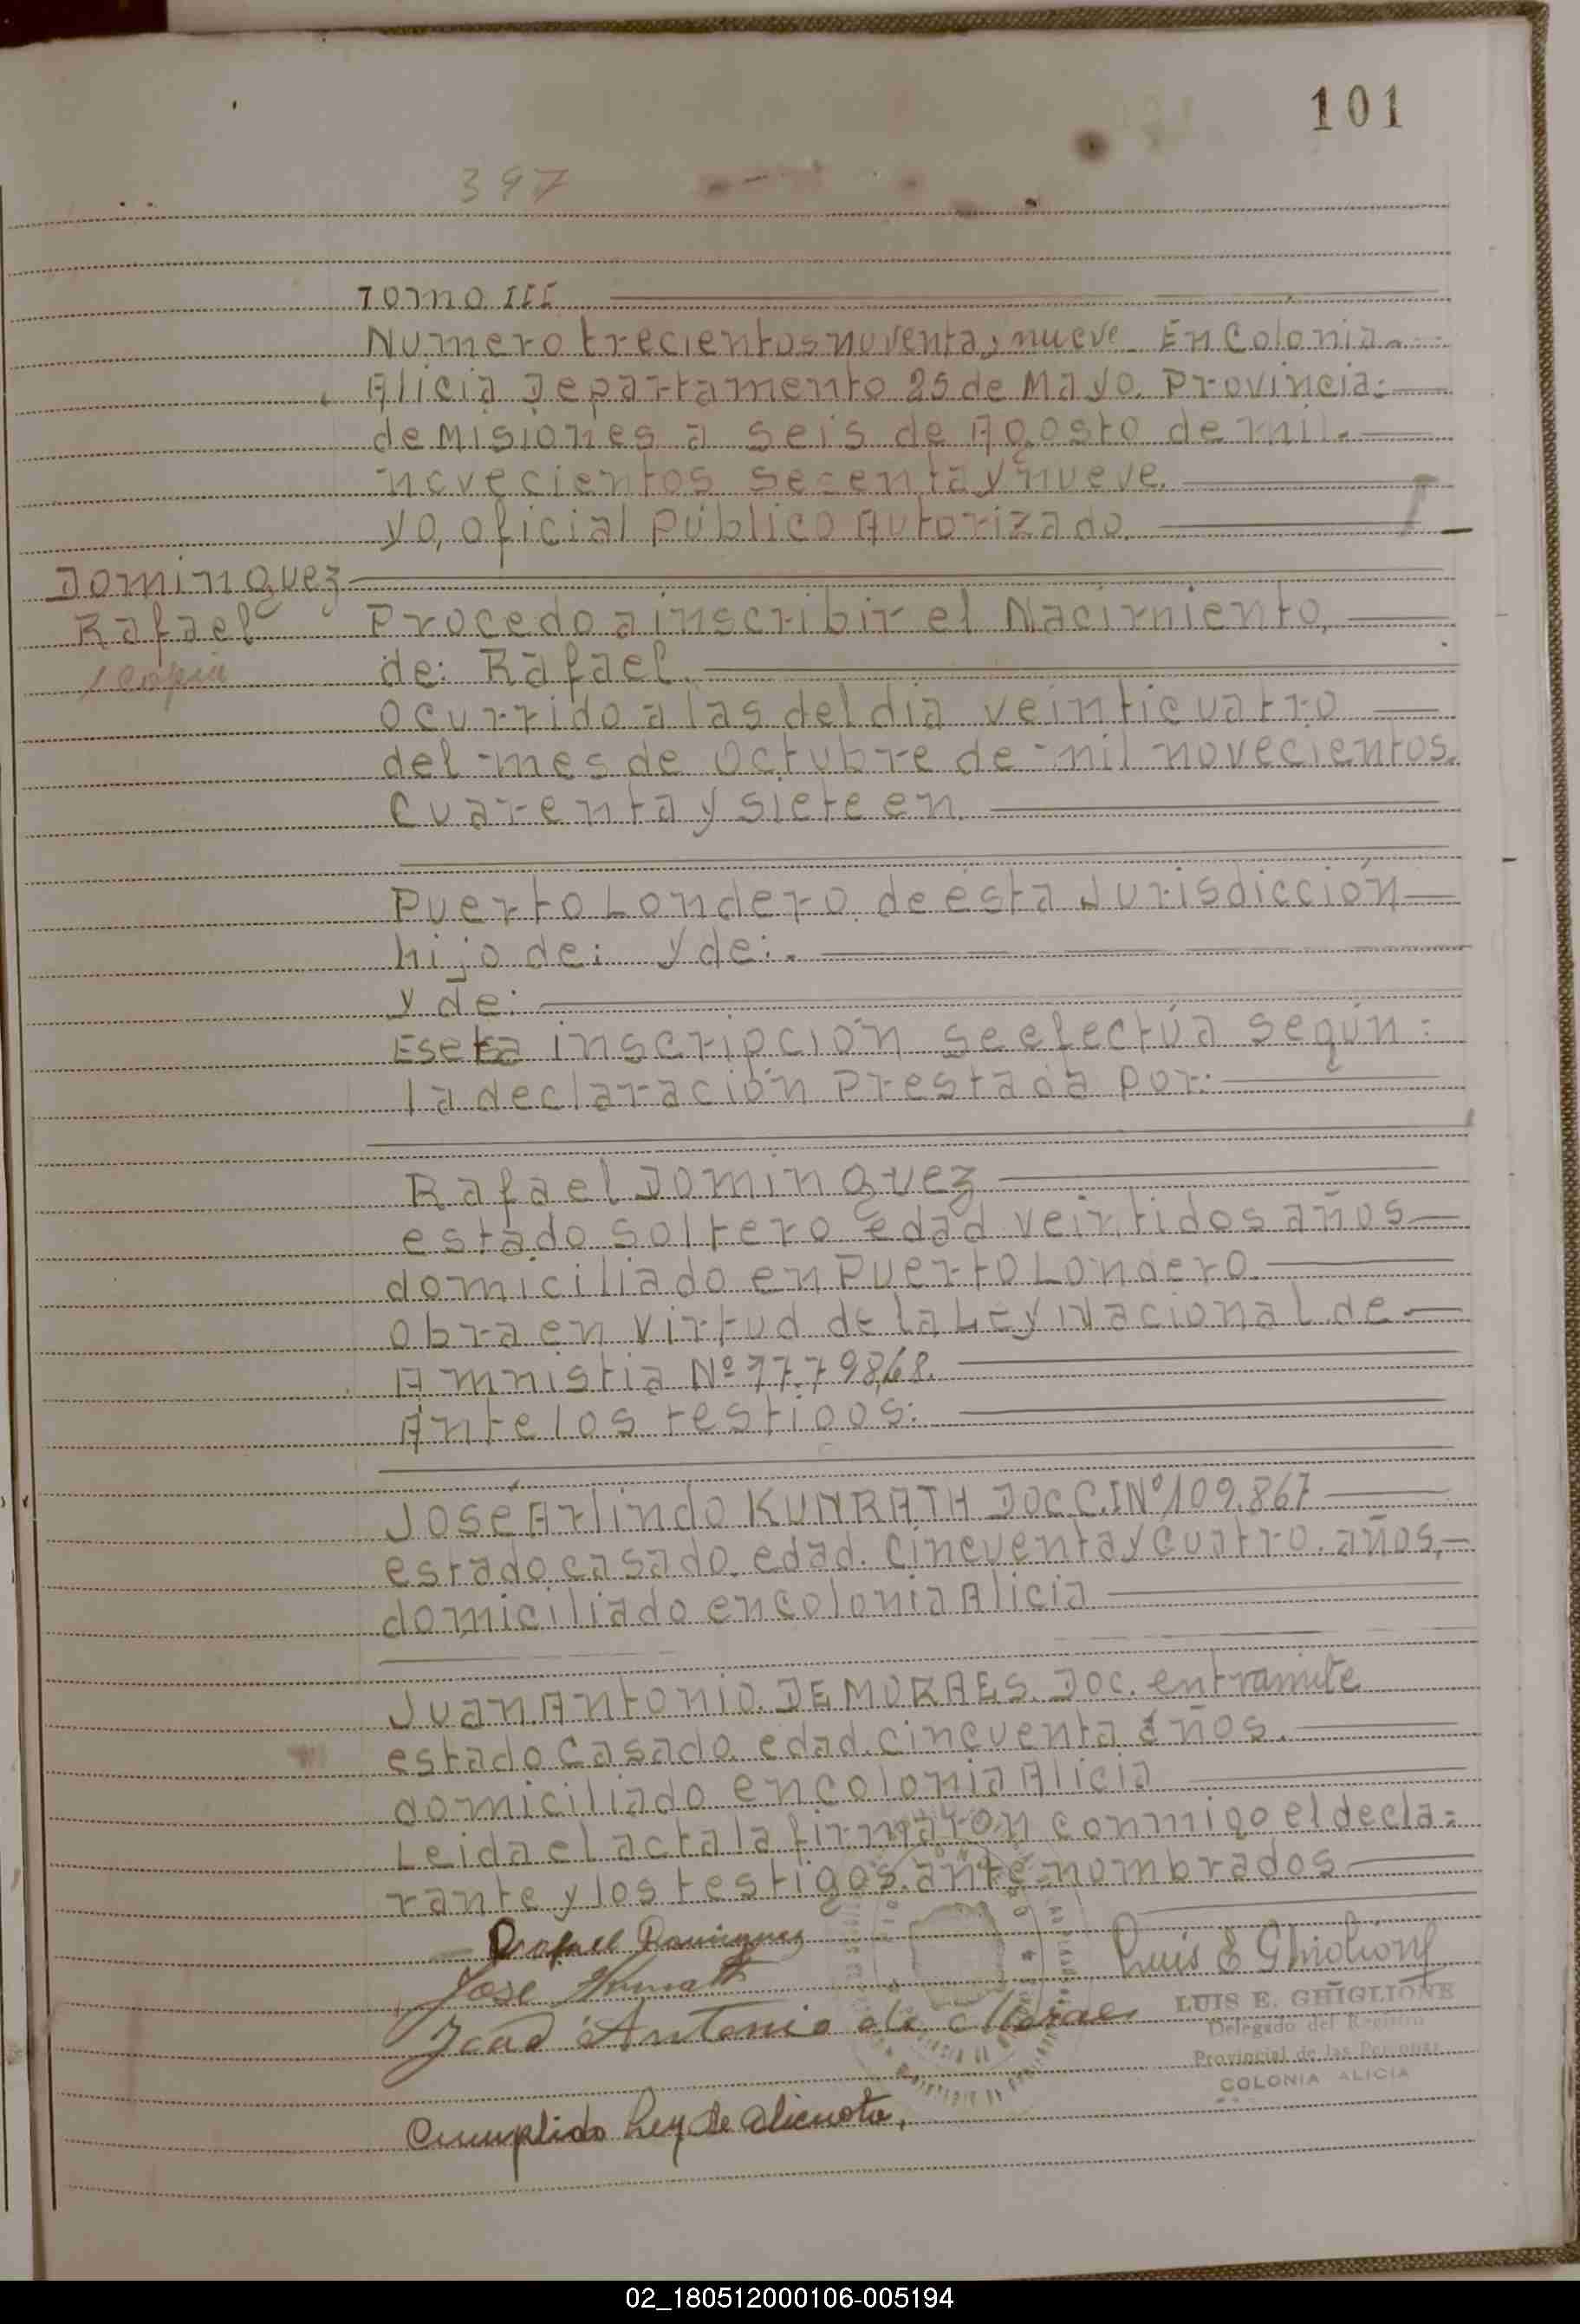 101
397
TOMO III
Numero trecientos noventa y nueve En Colonia
Alicia Departamento 25 de Mayo. Provincia:
de Misiones a seis de Agosto de mil.
novecientos secenta y nueve.
yo, oficial Público Autorizado.
Dominguez
Rafael
1 copia
Procedo a inscribir el Nacimiento,
de: Rafael.
ocurrido a las del dia veinticuatro
del mes de octubre de mil novecientos.
cuarenta y siete en.
Puerto Londero. de ésta Jurisdicción
hijo de: y de:.
y de:
Eseta inscripción se efectúa según:
la declaración Prestada por:
Rafael Dominguez
estado soltero edad veintidos años
domiciliado en Puerto Londero.
obra en virtud de la Ley Nacional de
Amnistia Nº 17.798,68.
Ante los testigos:
José Arlindo KUNRATH Doc C.I Nº 109.867
estado casado. edad. cincuenta y cuatro. años,
domiciliado en colonia Alicia
Juan Antonio. DE MORAES. Doc. en tramite
estado casado. edad. cincuenta años.
domiciliado en colonia Alicia
Leida el acta la firmaron conmigo el decla=
rante y los testigos. ante=nombrados
Rafael Dominguez
Jose Kunrath
Joao Antonio de Moraes
Luis E Ghiglione
LUIS E. GHIGLIONE
Delegado del Registro
Provincial de las Personas
COLONIA ALICIA
Cumplido Ley de alicuota,
02_180512000106-005194